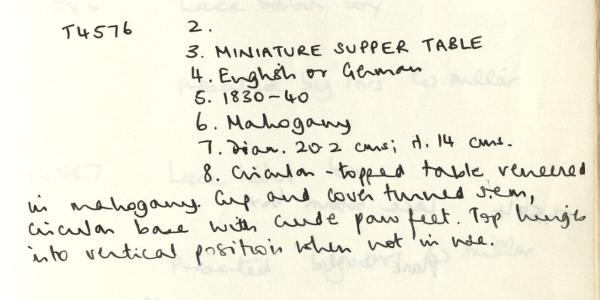 T4576 2.
3. MINIATURE SUPPER TABLE
4. English or German
5. 1830-40
6. Mahogany
7. Diam. 20.2 cms; H. 14 cms.
8. Circular-topped table veneered
in mahogany. Cup and cover turned stem,
circular base with crude paw feet. Top hinges
into vertical position when not in use.